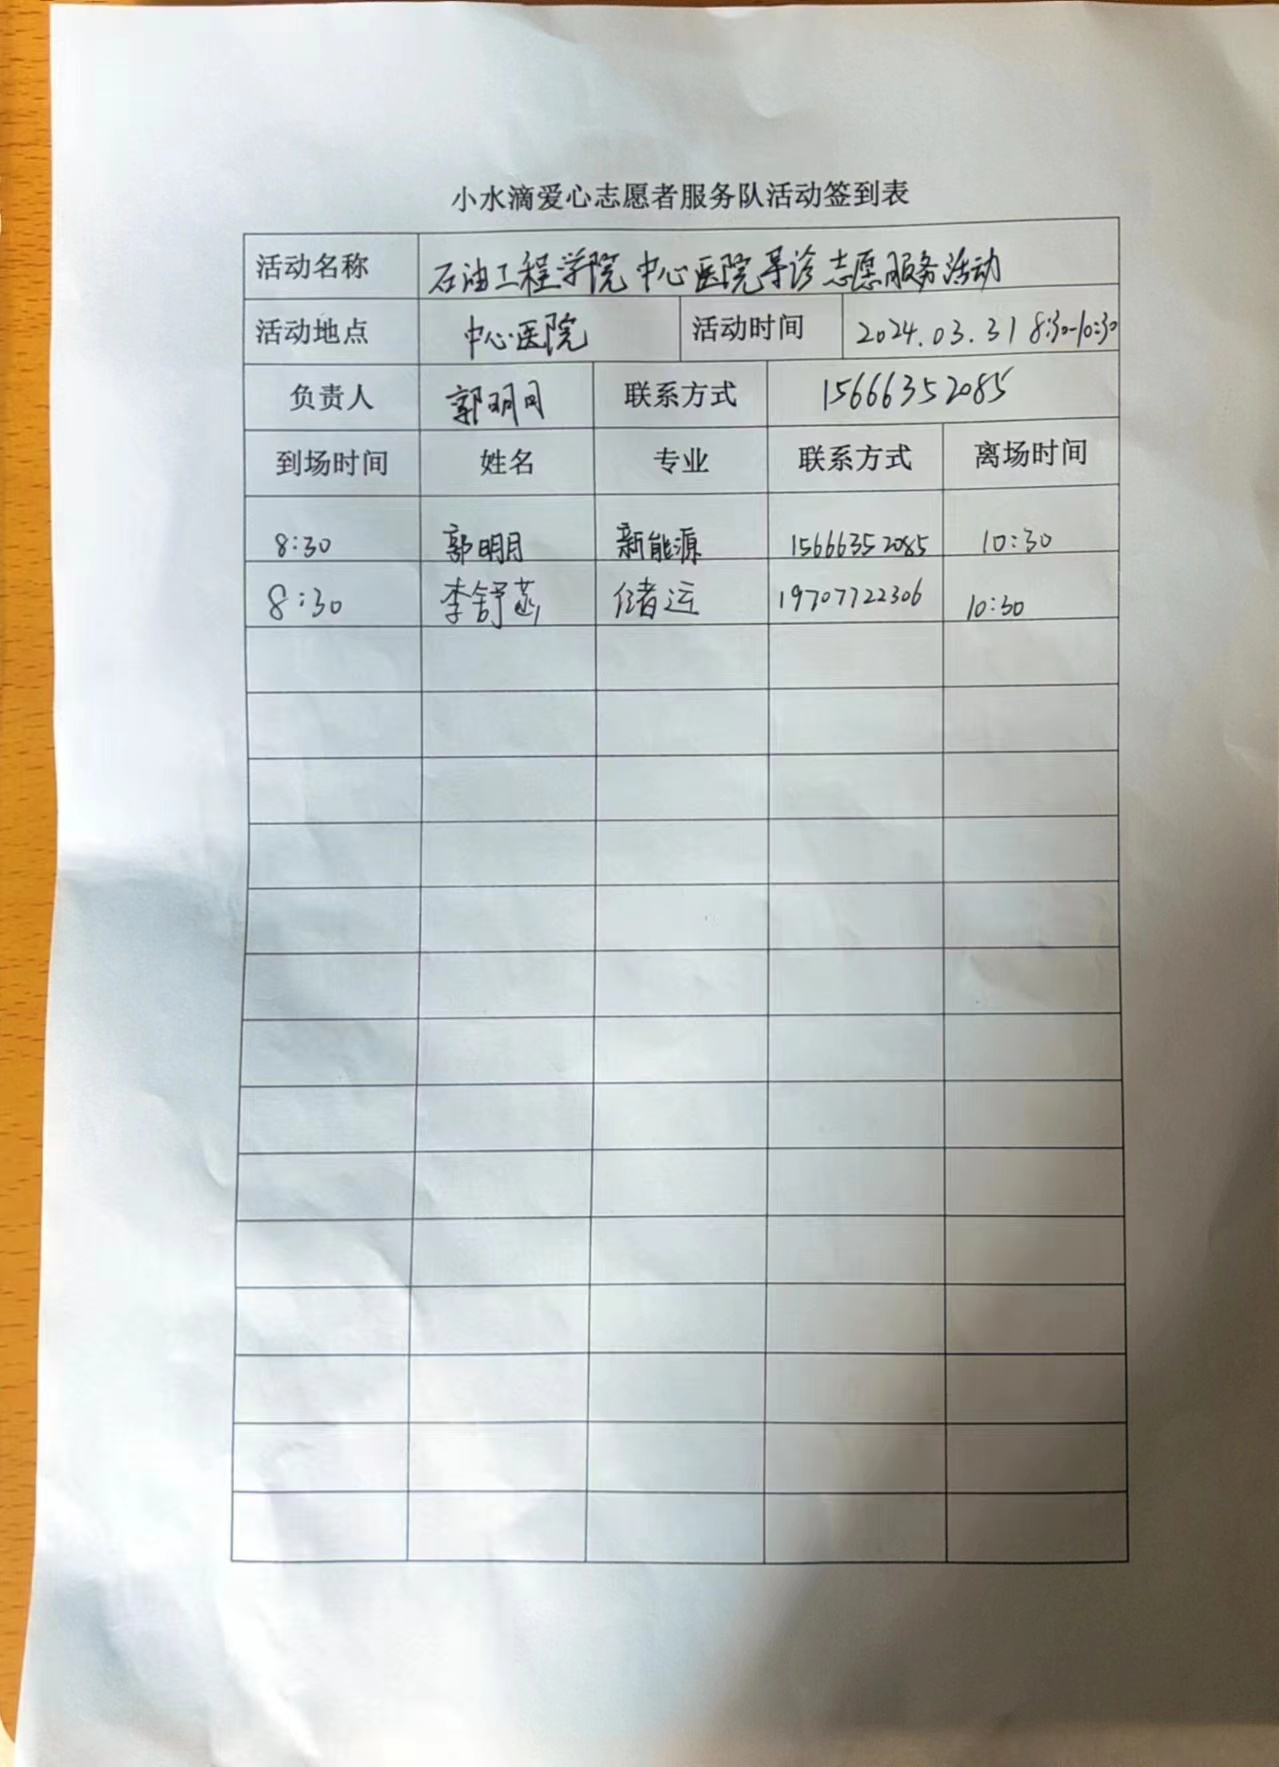 小水滴爱心志愿者服务队活动签到表
活动名称 石油工程学院中心医院导诊志愿服务活动
活动地点 中心医院 活动时间 2024.03.31 8:30-10:30
负责人 郭明月 联系方式 15666352085
到场时间 姓名 专业 联系方式 离场时间
8:30 郭明月 新能源 15666352085 10:30
8:30 李舒菡 储运 19707722306 10:30